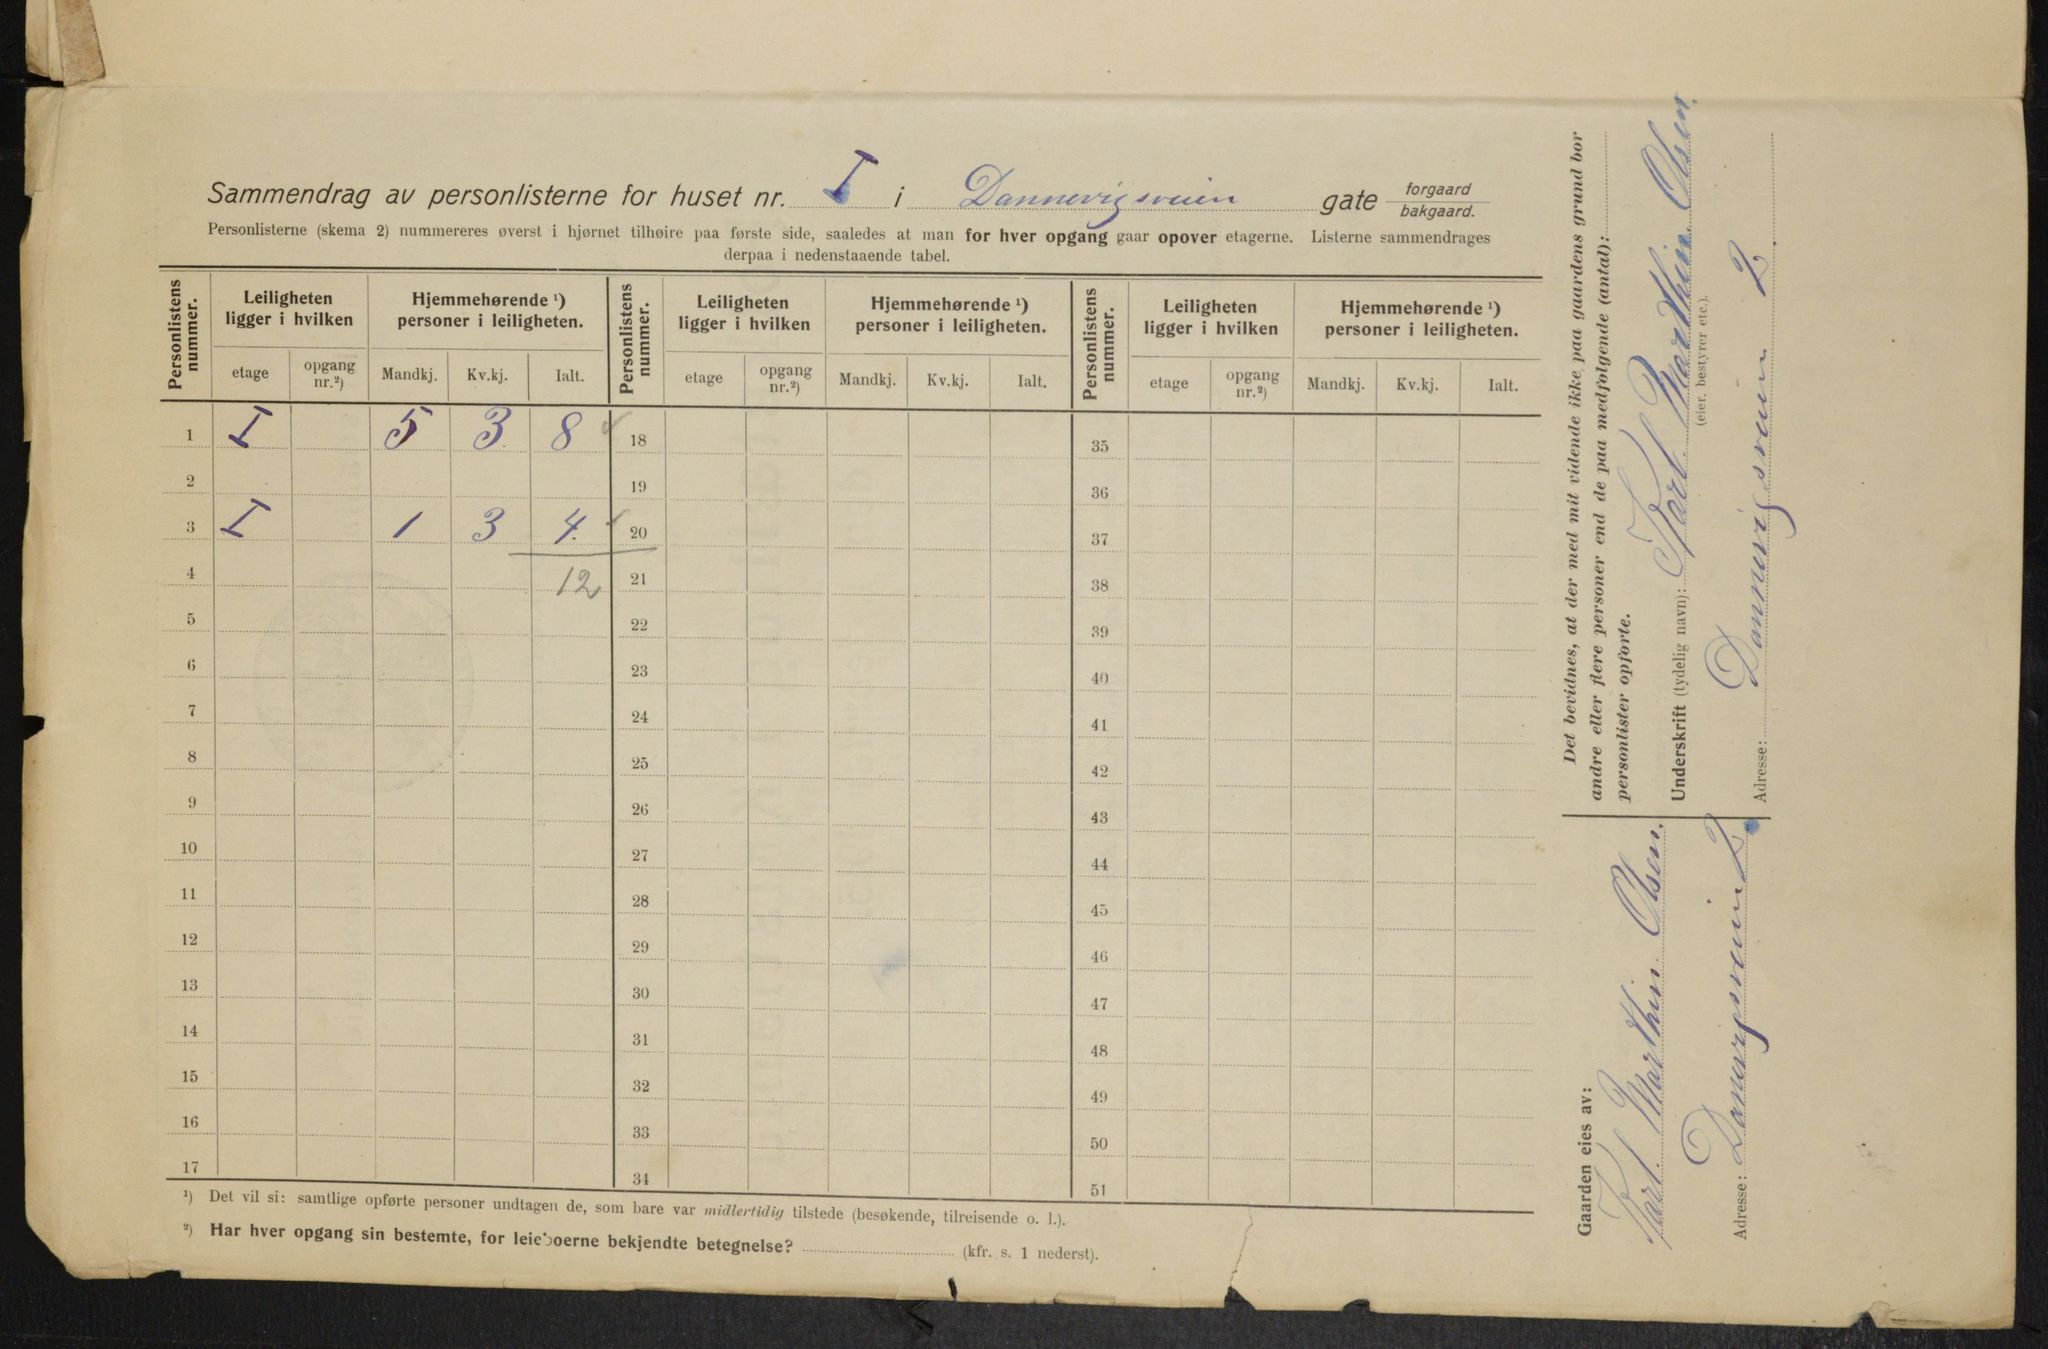 Sammendrag av personlisterne for huset nr. I i Dannevigsveien gate forgaard
bakgaard.
Personlisterne (skema 2) nummereres øverst i hjørnet tilhøire paa første side, saaledes at man for hver opgang gaar opover etagerne. Listerne sammendrages
derpaa i nedenstaaende tabel.
Personlistens nummer. Leiligheten ligger i hvilken Hjemmehørende ¹) personer i leiligheten. Personlistens nummer. Leiligheten ligger i hvilken Hjemmehørende ¹) personer i leiligheten. Personlistens nummer. Leiligheten ligger i hvilken Hjemmehørende ¹) personer i leiligheten.
etage opgang nr.²) Mandkj. Kv.kj. Ialt. etage opgang nr.²) Mandkj. Kv.kj. Ialt. etage opgang nr.²) Mandkj. Kv.kj. Ialt.
1 I 5 3 8 18 35
2 19 36
3 I 1 3 4 20 37
4 12 21 38
5 22 39
6 23 40
7 24 41
8 25 42
9 26 43
10 27 44
11 28 45
12 29 46
13 30 47
14 31 48
15 32 49
16 33 50
17 34 51
¹) Det vil si: samtlige opførte personer undtagen de, som bare var midlertidig tilstede (besøkende, tilreisende o. l.).
²) Har hver opgang sin bestemte, for leieboerne bekjendte betegnelse? (kfr. s. 1 nederst).
Det bevidnes, at der med mit vidende ikke paa gaardens grund bor
andre eller flere personer end de paa medfølgende (antal):
personlister opførte.
Underskrift (tydelig navn): Karl Marthin Olsen.
(eier, bestyrer etc.).
Adresse: Dannevigsveien 2.
Gaarden eies av:
Karl Marthin Olsen.
Adresse: Dannevigsveien 2